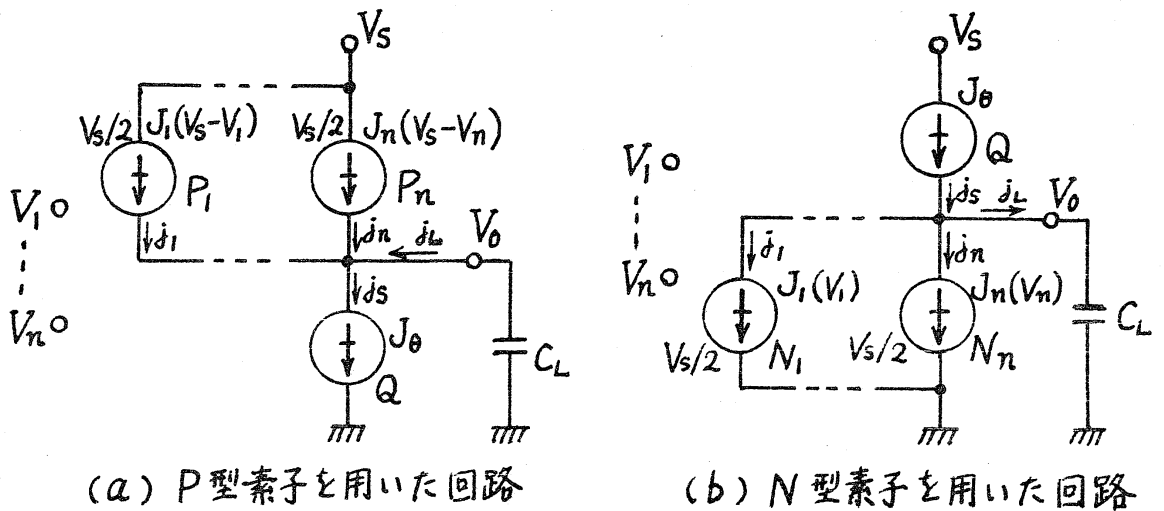 V_S
V_S/2 J_1(V_S-V_1)
P_1
V_S/2 J_n(V_S-V_n)
P_n
V_1
V_n
j_1
j_n
j_L
V_0
j_S
J_θ
Q
C_L
(a) P型素子を用いた回路
V_S
J_θ
Q
V_1
V_n
j_S
j_L
V_0
j_1
j_n
J_1(V_1)
V_S/2
N_1
J_n(V_n)
V_S/2
N_n
C_L
(b) N型素子を用いた回路